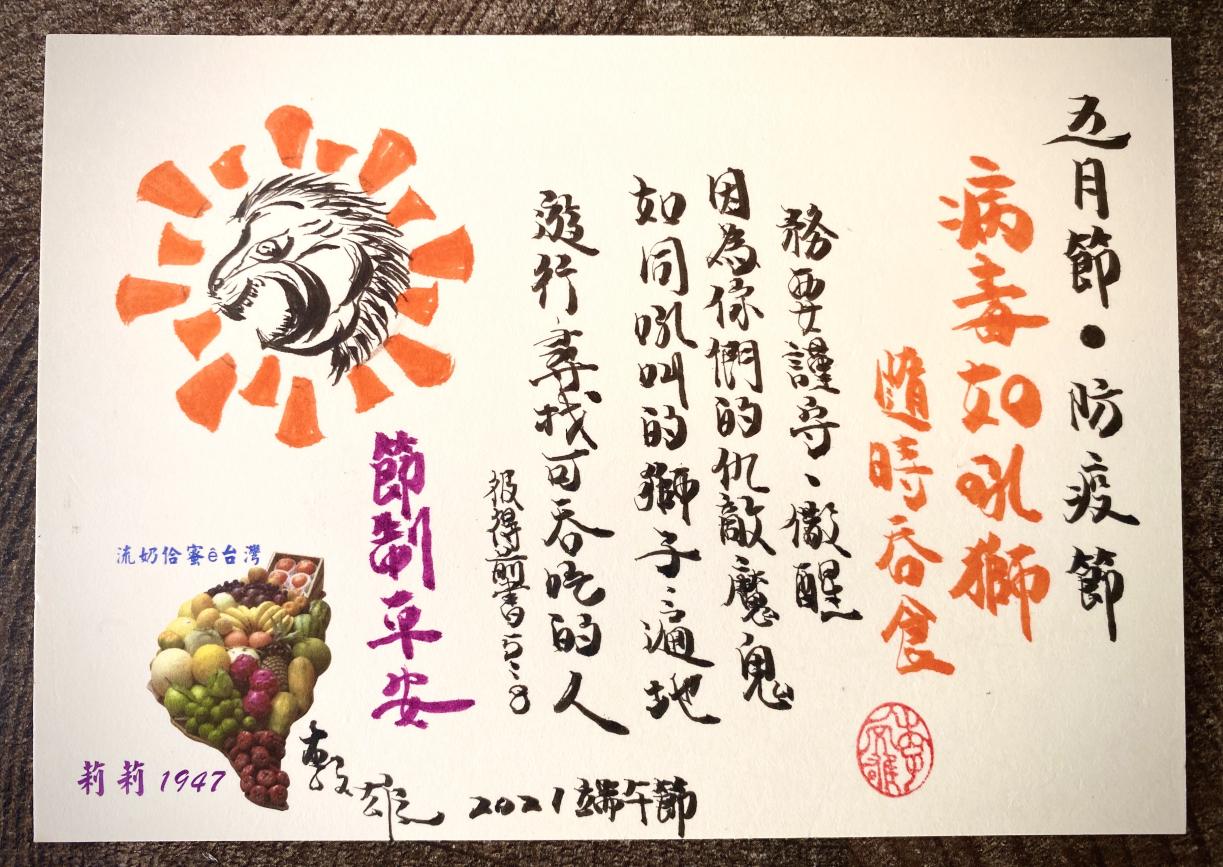 五月節•防疫節
病毒如吼獅
隨時吞食
務要謹守、儆醒
因為你們的仇敵魔鬼
如同吼叫的獅子、遍地
遊行尋找可吞吃的人
彼得前書5:8
節制平安
流奶佮蜜ê台灣
莉莉 1947
敦雄
2021端午節